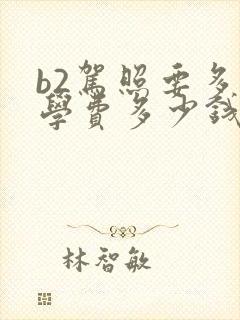 b2駕照要多
學費多少錢
林智敏